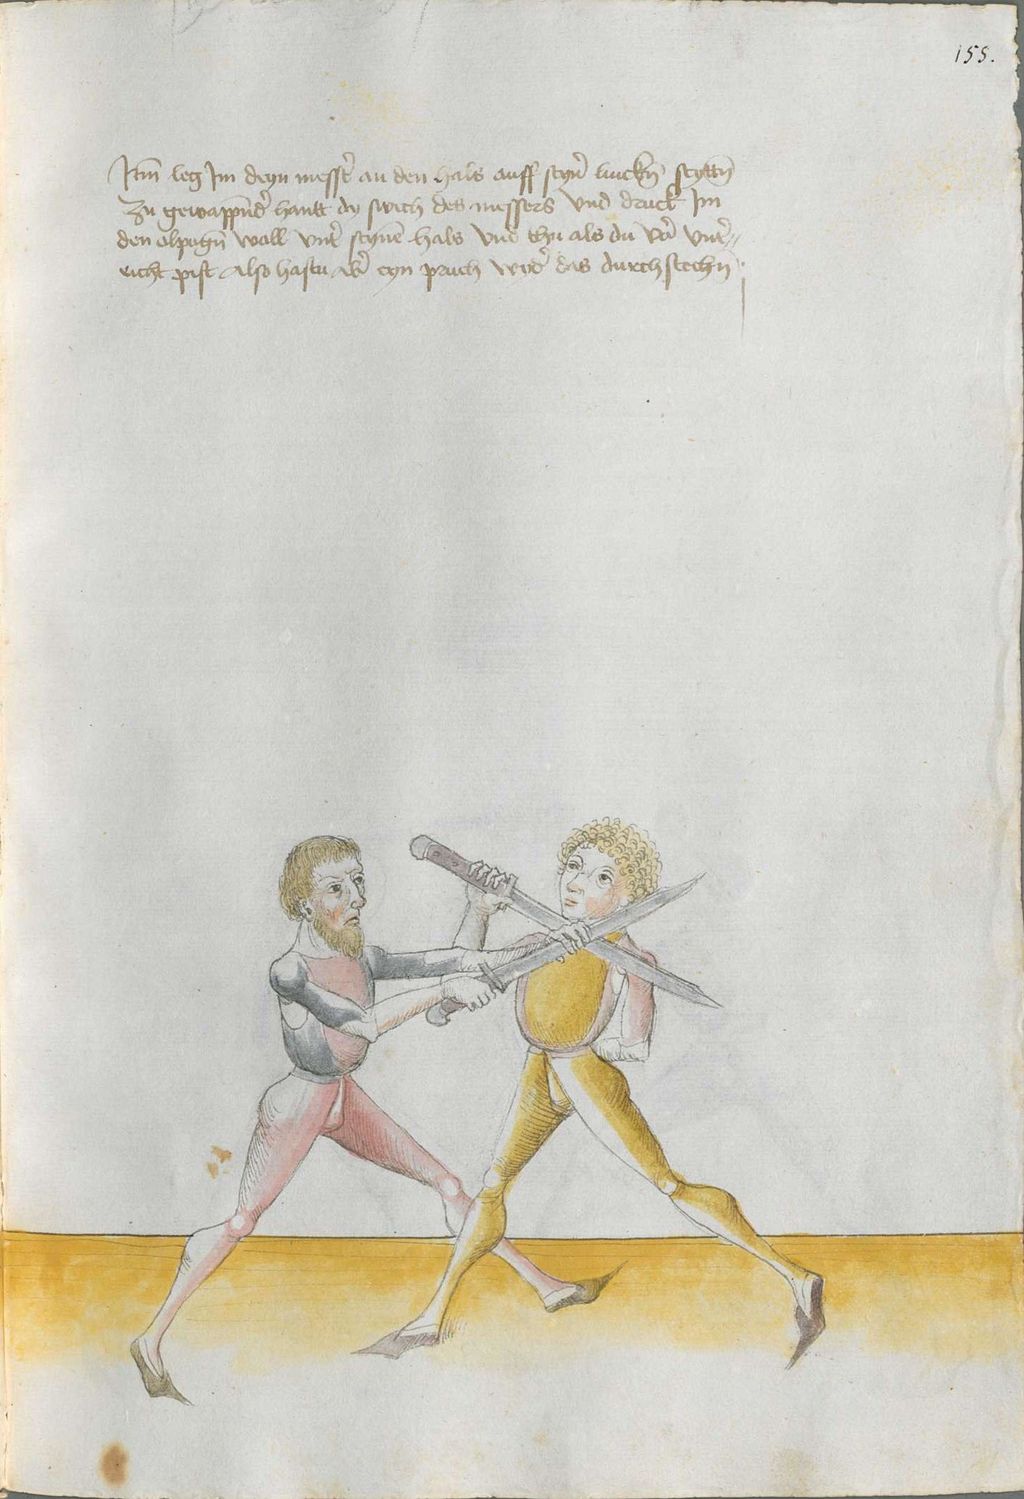 155.
Itm̄ leg Im deyn messer an den hals auff seyn̄ lincken̄ seytn̄
Zu gewappnd̄ hantt dy swech des messers vnd druck Im
den elpogn̄ woll vnt̄ seynē hals vnd thu als du vor̄ vnt̄=
richt pist Also hastu ab̄ eyn pruch wyd̄ das durchstechn̄